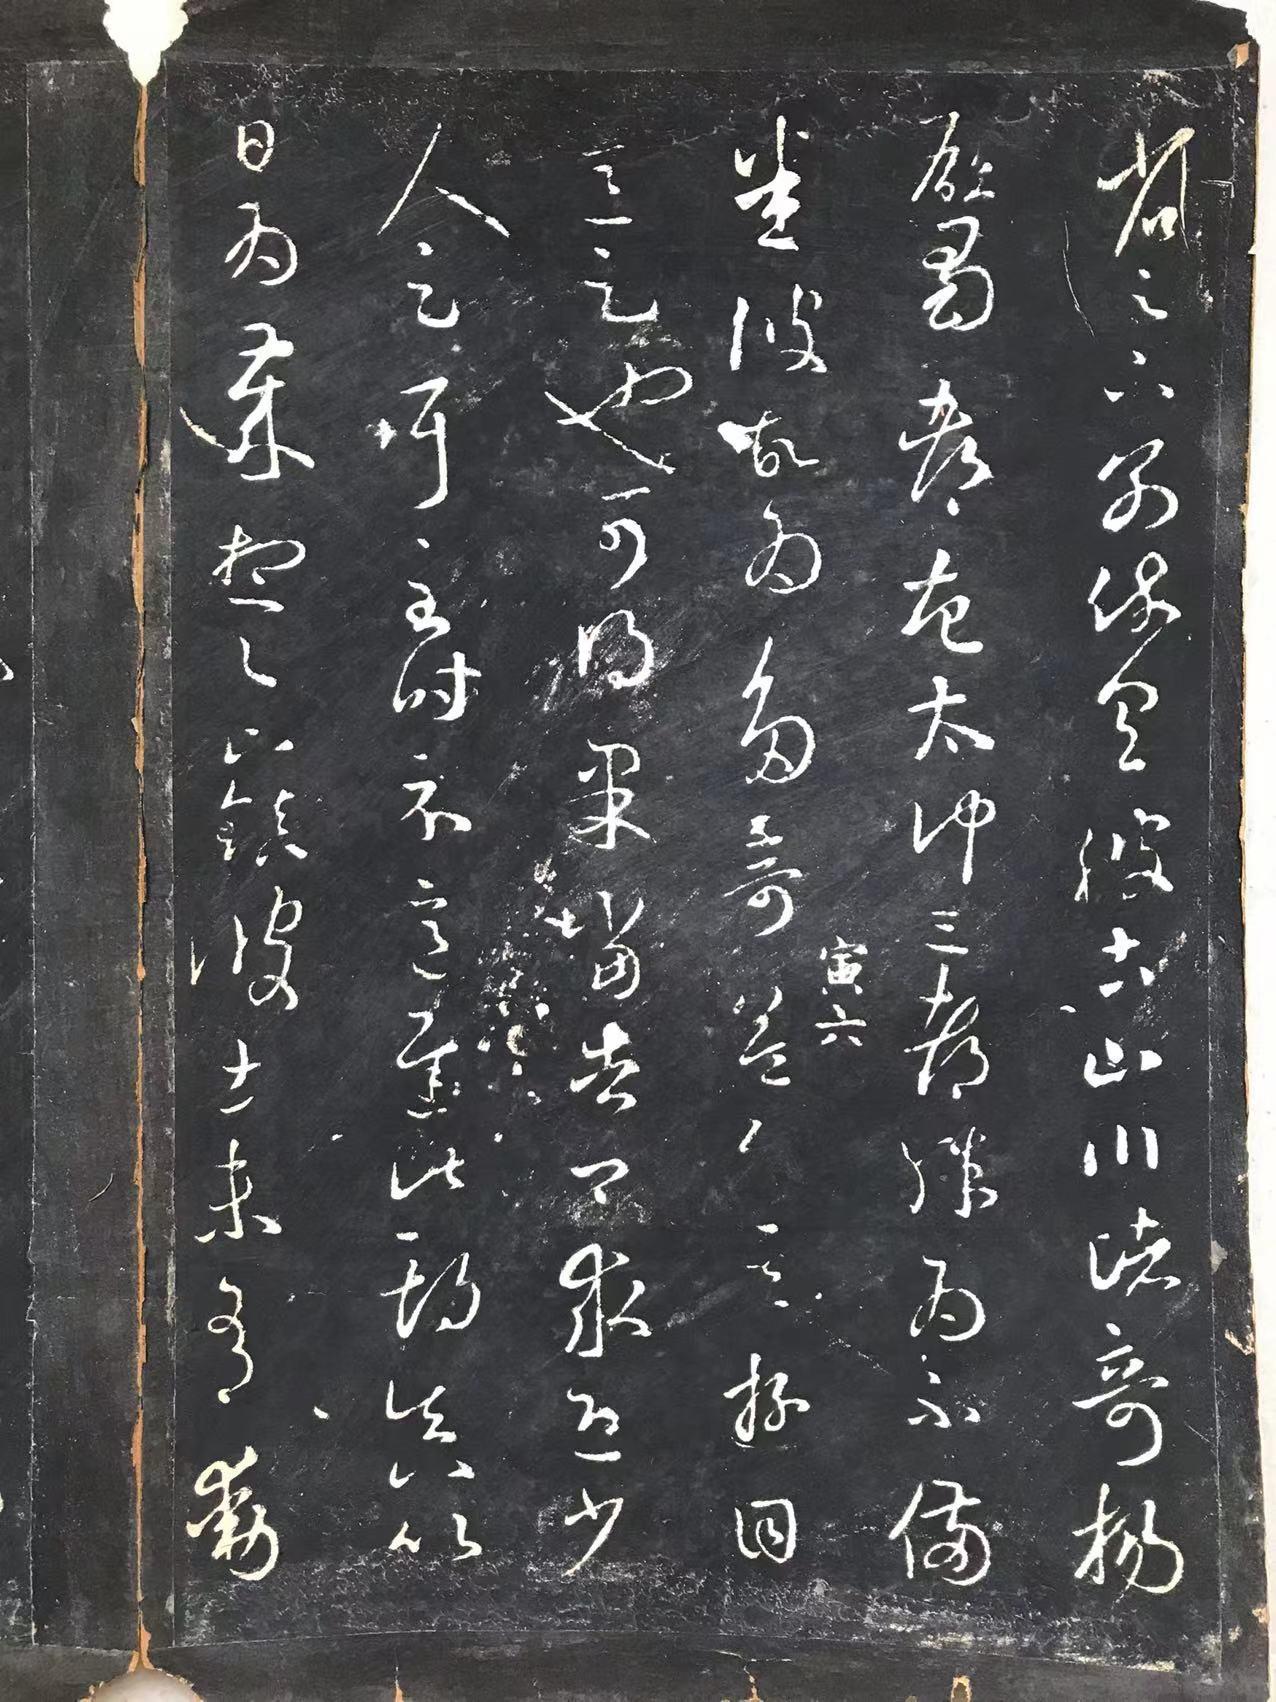 省足下別疏具彼土山川諸奇揚
雄蜀都左太沖三都殊為不備
寅六
悉彼故為多奇益令其游目
意足也可得果當告卿求迎少
人足耳至時示意遲此期真以
日為歲想足下鎮彼土未有動